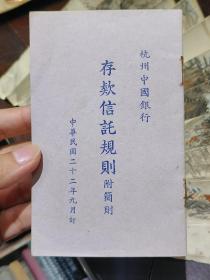 杭州中國銀行
存款信託規則附簡則
中華民國二十二年九月訂